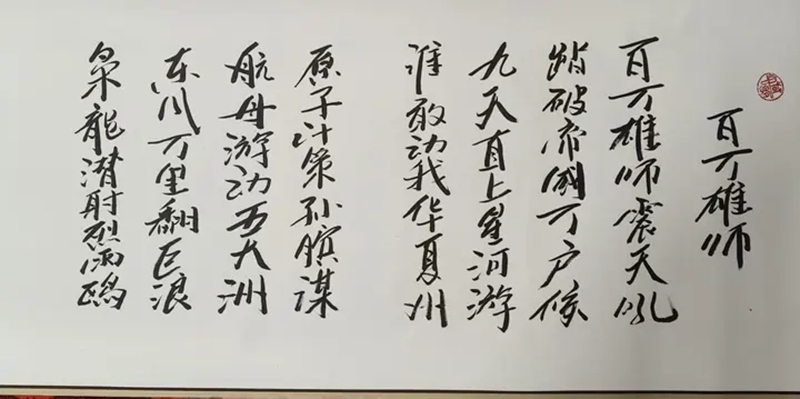 百万雄师
百万雄师震天吼
踏破帝国万户侯
九天直上星河游
谁敢动我华夏州
原子计策孙膑谋
航母游动五大洲
东风万里翻巨浪
枭龙潜射烈雨鸥